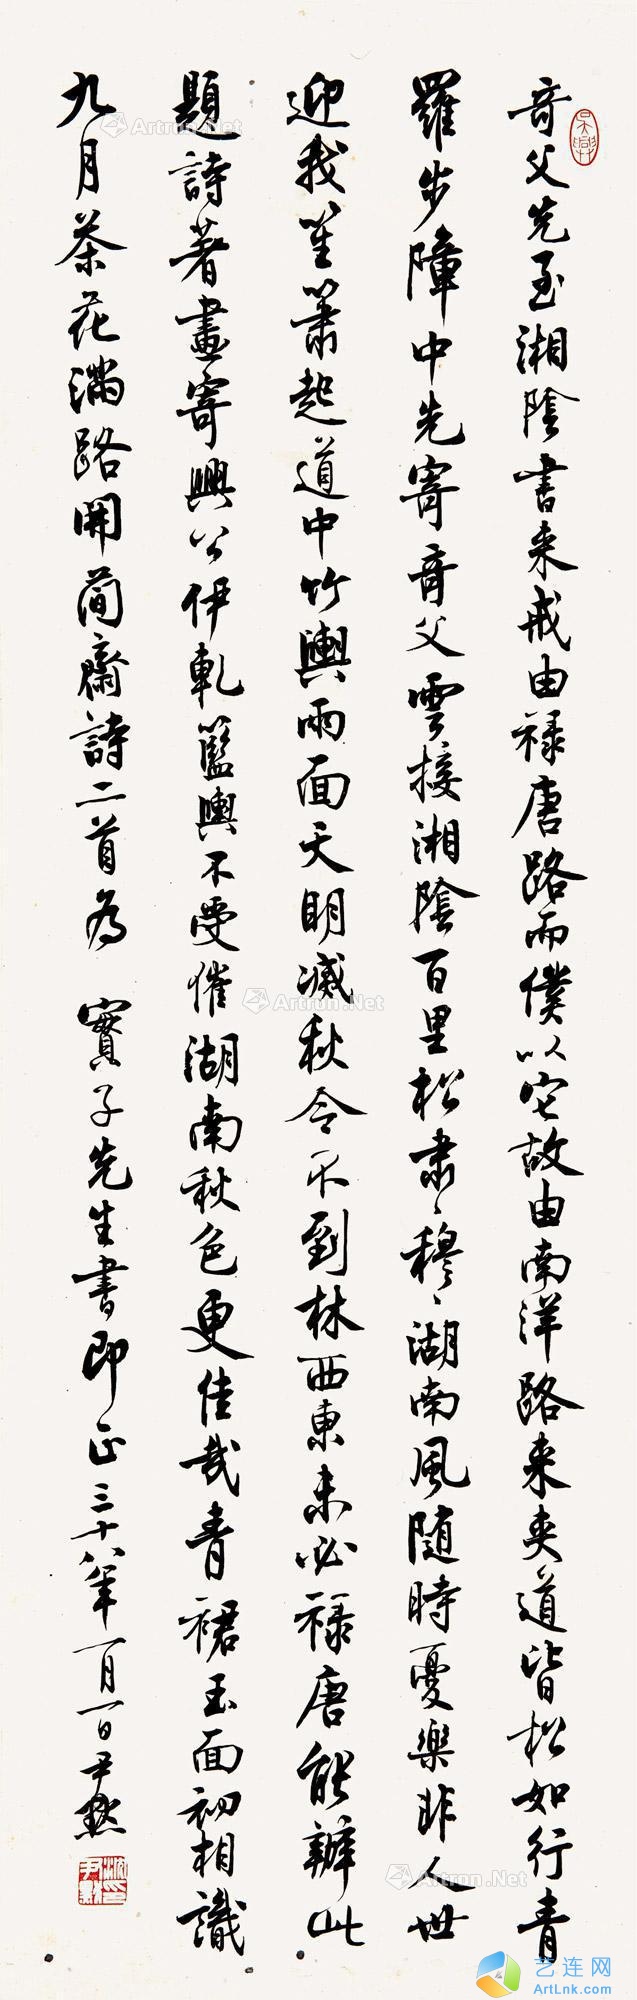 奇父先至湘陰書来戒由禄唐路而僕以它故由南洋路来夾道皆松如行青
羅步障中先寄奇父雲接湘陰百里松肅〻穆〻湖南風随時憂樂非人世
迎我笙簫起道中竹輿雨面天明滅秋令不到林西東未必禄唐能辦此
題詩著畫寄興公伊軋籃輿不受催湖南秋色更佳哉青裙玉面初相識
九月茶花滿路開簡齋詩二首為 實子先生書即正三十八年一月一日尹默
吴興
沈尹默印
Artron.Net
Artron.Net
Artron.Net
Artron.Net
Artron.Net
艺连网
ArtLnk.com